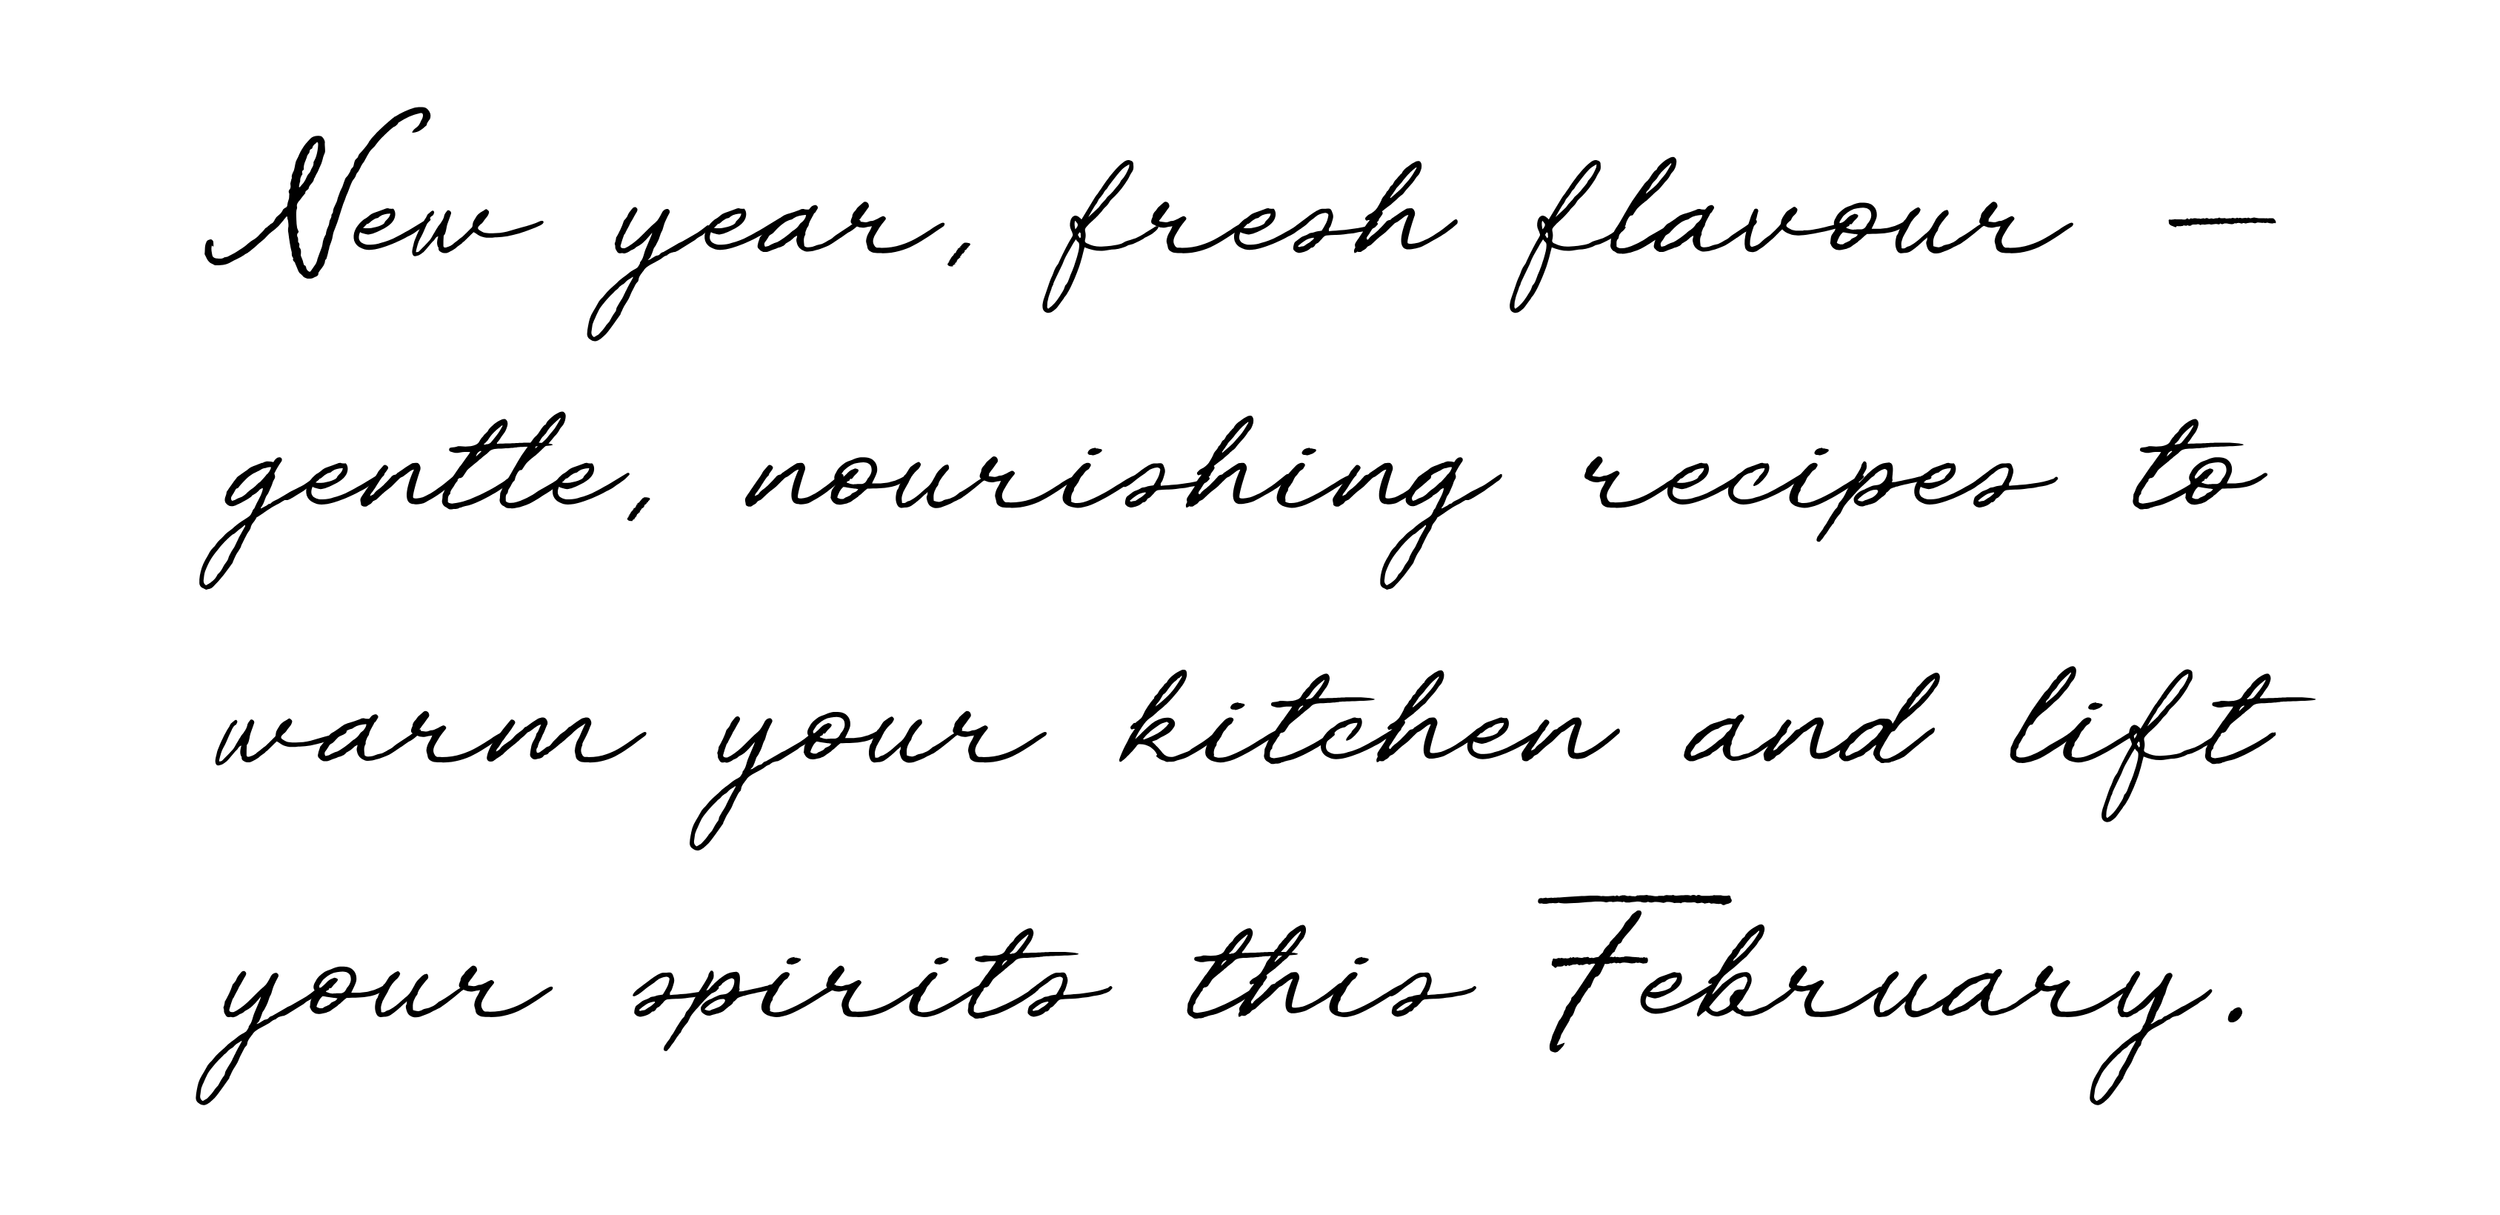 New year, fresh flavour -
gentle, nourishing recipes to
warm your kitchen and lift
your spirits this February.